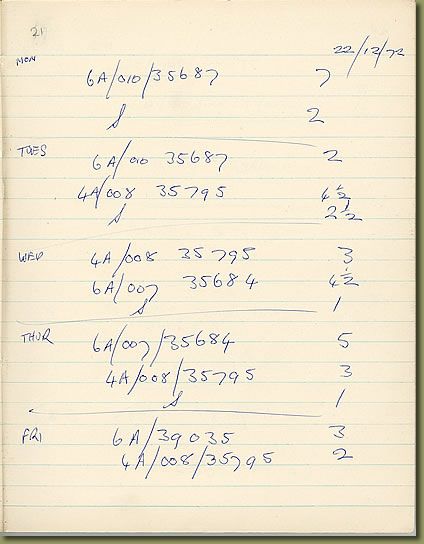 21
22/12/72
MON
6A/010/35687 7
S 2
TUES
6A/010 35687 2
4A/008 35795 4½
S 2½
WED
4A/008 35795 3
6A/007 35684 4½
S 1
THUR
6A/007/35684 5
4A/008/35795 3
S 1
FRI
6A/39035 3
4A/008/35795 2